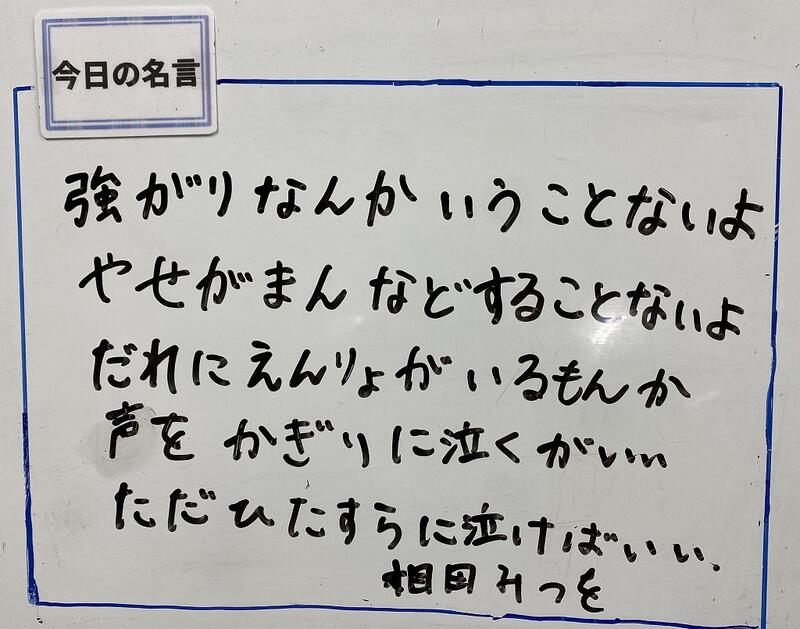 今日の名言
強がりなんかいうことないよ
やせがまんなどすることないよ
だれにえんりょがいるもんか
声をかぎりに泣くがいい
ただひたすらに泣けばいい.
相田みつを